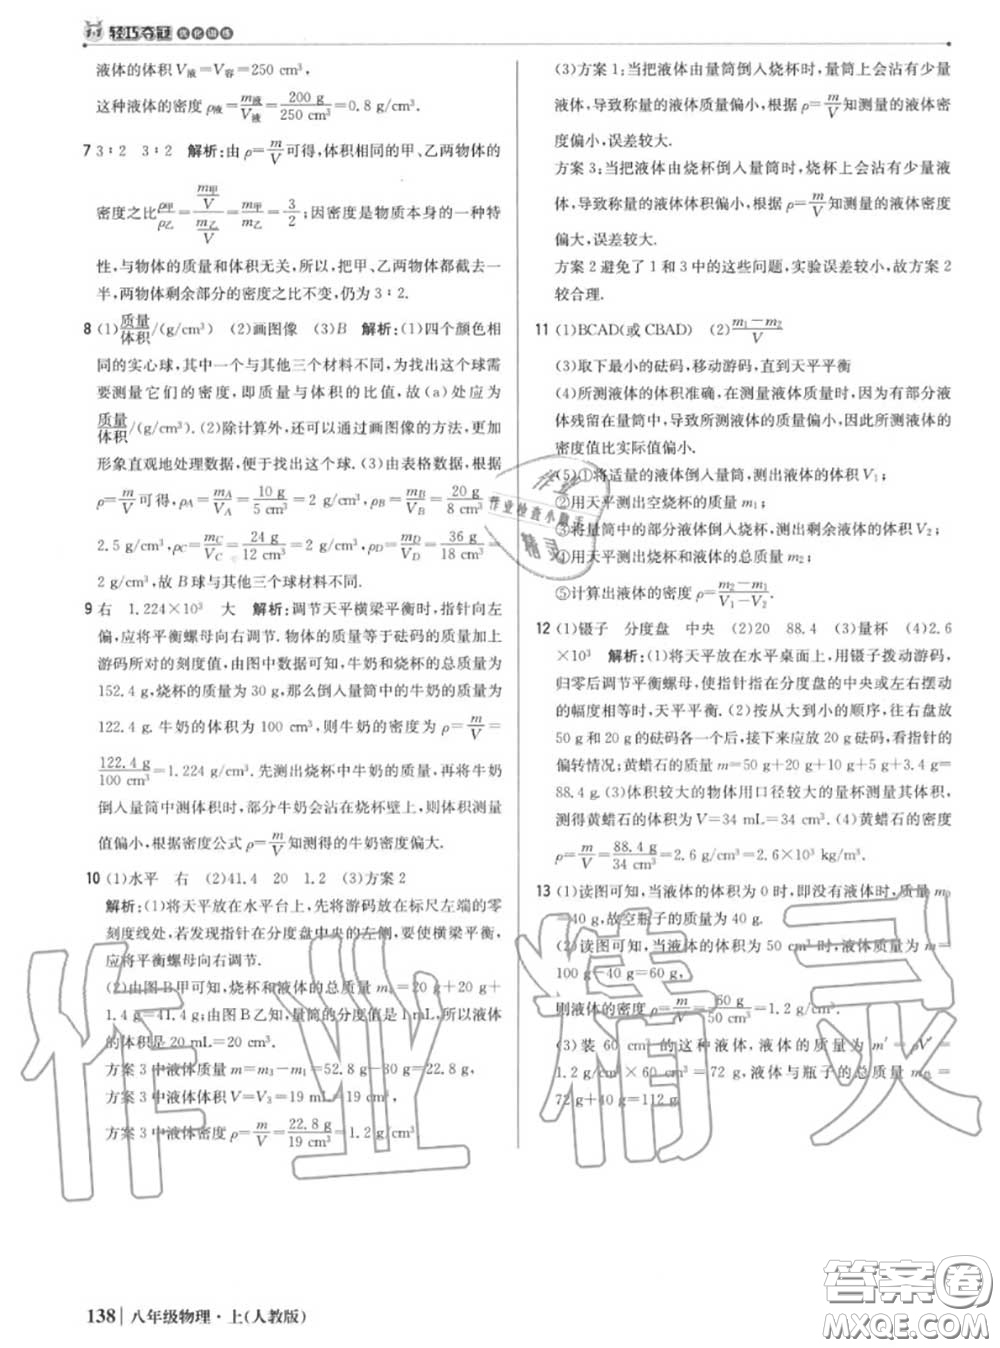 轻巧夺冠 优化训练
液体的体积 V液=V容=250 cm³,
这种液体的密度 ρ液=m液/V液=200 g/250 cm³=0.8 g/cm³.
7 3∶2 3∶2 解析:由 ρ=m/V可得,体积相同的甲、乙两物体的
密度之比ρ甲/ρ乙=(m甲/V)/(m乙/V)=m甲/m乙=3/2;因密度是物质本身的一种特
性,与物体的质量和体积无关,所以,把甲、乙两物体都截去一
半,两物体剩余部分的密度之比不变,仍为 3∶2.
8 (1)质量/体积/(g/cm³) (2)画图像 (3)B 解析:(1)四个颜色相
同的实心球,其中一个与其他三个材料不同,为找出这个球需
要测量它们的密度,即质量与体积的比值,故(a)处应为
质量/体积/(g/cm³).(2)除计算外,还可以通过画图像的方法,更加
形象直观地处理数据,便于找出这个球.(3)由表格数据,根据
ρ=m/V可得,ρA=mA/VA=10 g/5 cm³=2 g/cm³,ρB=mB/VB=20 g/8 cm³=
2.5 g/cm³,ρC=mC/VC=24 g/12 cm³=2 g/cm³,ρD=mD/VD=36 g/18 cm³=
2 g/cm³,故 B 球与其他三个球材料不同.
9 右 1.224×10³ 大 解析:调节天平横梁平衡时,指针向左
偏,应将平衡螺母向右调节.物体的质量等于砝码的质量加上
游码所对的刻度值,由图中数据可知,牛奶和烧杯的总质量为
152.4 g,烧杯的质量为 30 g,那么倒入量筒中的牛奶的质量为
122.4 g.牛奶的体积为 100 cm³,则牛奶的密度为 ρ=m/V=
122.4 g/100 cm³=1.224 g/cm³.先测出烧杯中牛奶的质量,再将牛奶
倒入量筒中测体积时,部分牛奶会沾在烧杯壁上,则体积测量
值偏小,根据密度公式 ρ=m/V知测得的牛奶密度偏大.
10 (1)水平 右 (2)41.4 20 1.2 (3)方案 2
解析:(1)将天平放在水平台上,先将游码放在标尺左端的零
刻度线处,若发现指针在分度盘中央的左侧,要使横梁平衡,
应将平衡螺母向右调节.
(2)由图 B 甲可知,烧杯和液体的总质量 m=20 g+20 g+
1.4 g=41.4 g;由图 B 乙知,量筒的分度值是 1 mL,所以液体
的体积是 20 mL=20 cm³.
方案 3 中液体质量 m=m3−m1=52.8 g−30 g=22.8 g,
方案 3 中液体体积 V=V3=19 mL=19 cm³,
方案 3 中液体密度 ρ=m/V=22.8 g/19 cm³=1.2 g/cm³.
(3)方案 1:当把液体由量筒倒入烧杯时,量筒上会沾有少量
液体,导致称量的液体质量偏小,根据 ρ=m/V知测量的液体密
度偏小,误差较大.
方案 3:当把液体由烧杯倒入量筒时,烧杯上会沾有少量液
体,导致称量的液体体积偏小,根据 ρ=m/V知测量的液体密度
偏大,误差较大.
方案 2 避免了 1 和 3 中的这些问题,实验误差较小,故方案 2
较合理.
11 (1)BCAD(或 CBAD) (2)m1−m2/V
(3)取下最小的砝码,移动游码,直到天平平衡
(4)所测液体的体积准确,在测量液体质量时,因为有部分液
体残留在量筒中,导致所测液体的质量偏小,因此所测液体的
密度值比实际值偏小.
(5)①将适量的液体倒入量筒,测出液体的体积 V1;
②用天平测出空烧杯的质量 m1;
③将量筒中的部分液体倒入烧杯,测出剩余液体的体积 V2;
④用天平测出烧杯和液体的总质量 m2;
⑤计算出液体的密度 ρ=m2−m1/V1−V2.
12 (1)镊子 分度盘 中央 (2)20 88.4 (3)量杯 (4)2.6
×10³ 解析:(1)将天平放在水平桌面上,用镊子拨动游码,
归零后调节平衡螺母,使指针指在分度盘的中央或左右摆动
的幅度相等时,天平平衡.(2)按从大到小的顺序,往右盘放
50 g 和 20 g 的砝码各一个后,接下来应放 20 g 砝码,看指针的
偏转情况;黄蜡石的质量 m=50 g+20 g+10 g+5 g+3.4 g=
88.4 g.(3)体积较大的物体用口径较大的量杯测量其体积,
测得黄蜡石的体积为 V=34 mL=34 cm³.(4)黄蜡石的密度
ρ=m/V=88.4 g/34 cm³=2.6 g/cm³=2.6×10³ kg/m³.
13 (1)读图可知,当液体的体积为 0 时,即没有液体时,质量 m
=40 g,故空瓶子的质量为 40 g.
(2)读图可知,当液体的体积为 50 cm³ 时,液体的质量为 m=
100 g−40 g=60 g,
则液体的密度 ρ=m/V=60 g/50 cm³=1.2 g/cm³.
(3)装 60 cm³ 的这种液体,液体的质量为 m′=ρV′=
1.2 g/cm³×60 cm³=72 g,液体与瓶子的总质量 m总=
72 g+40 g=112 g.
作业
作业检查小助手
精灵
作业精灵
138 八年级物理·上(人教版)
答案圈
MXQE.COM